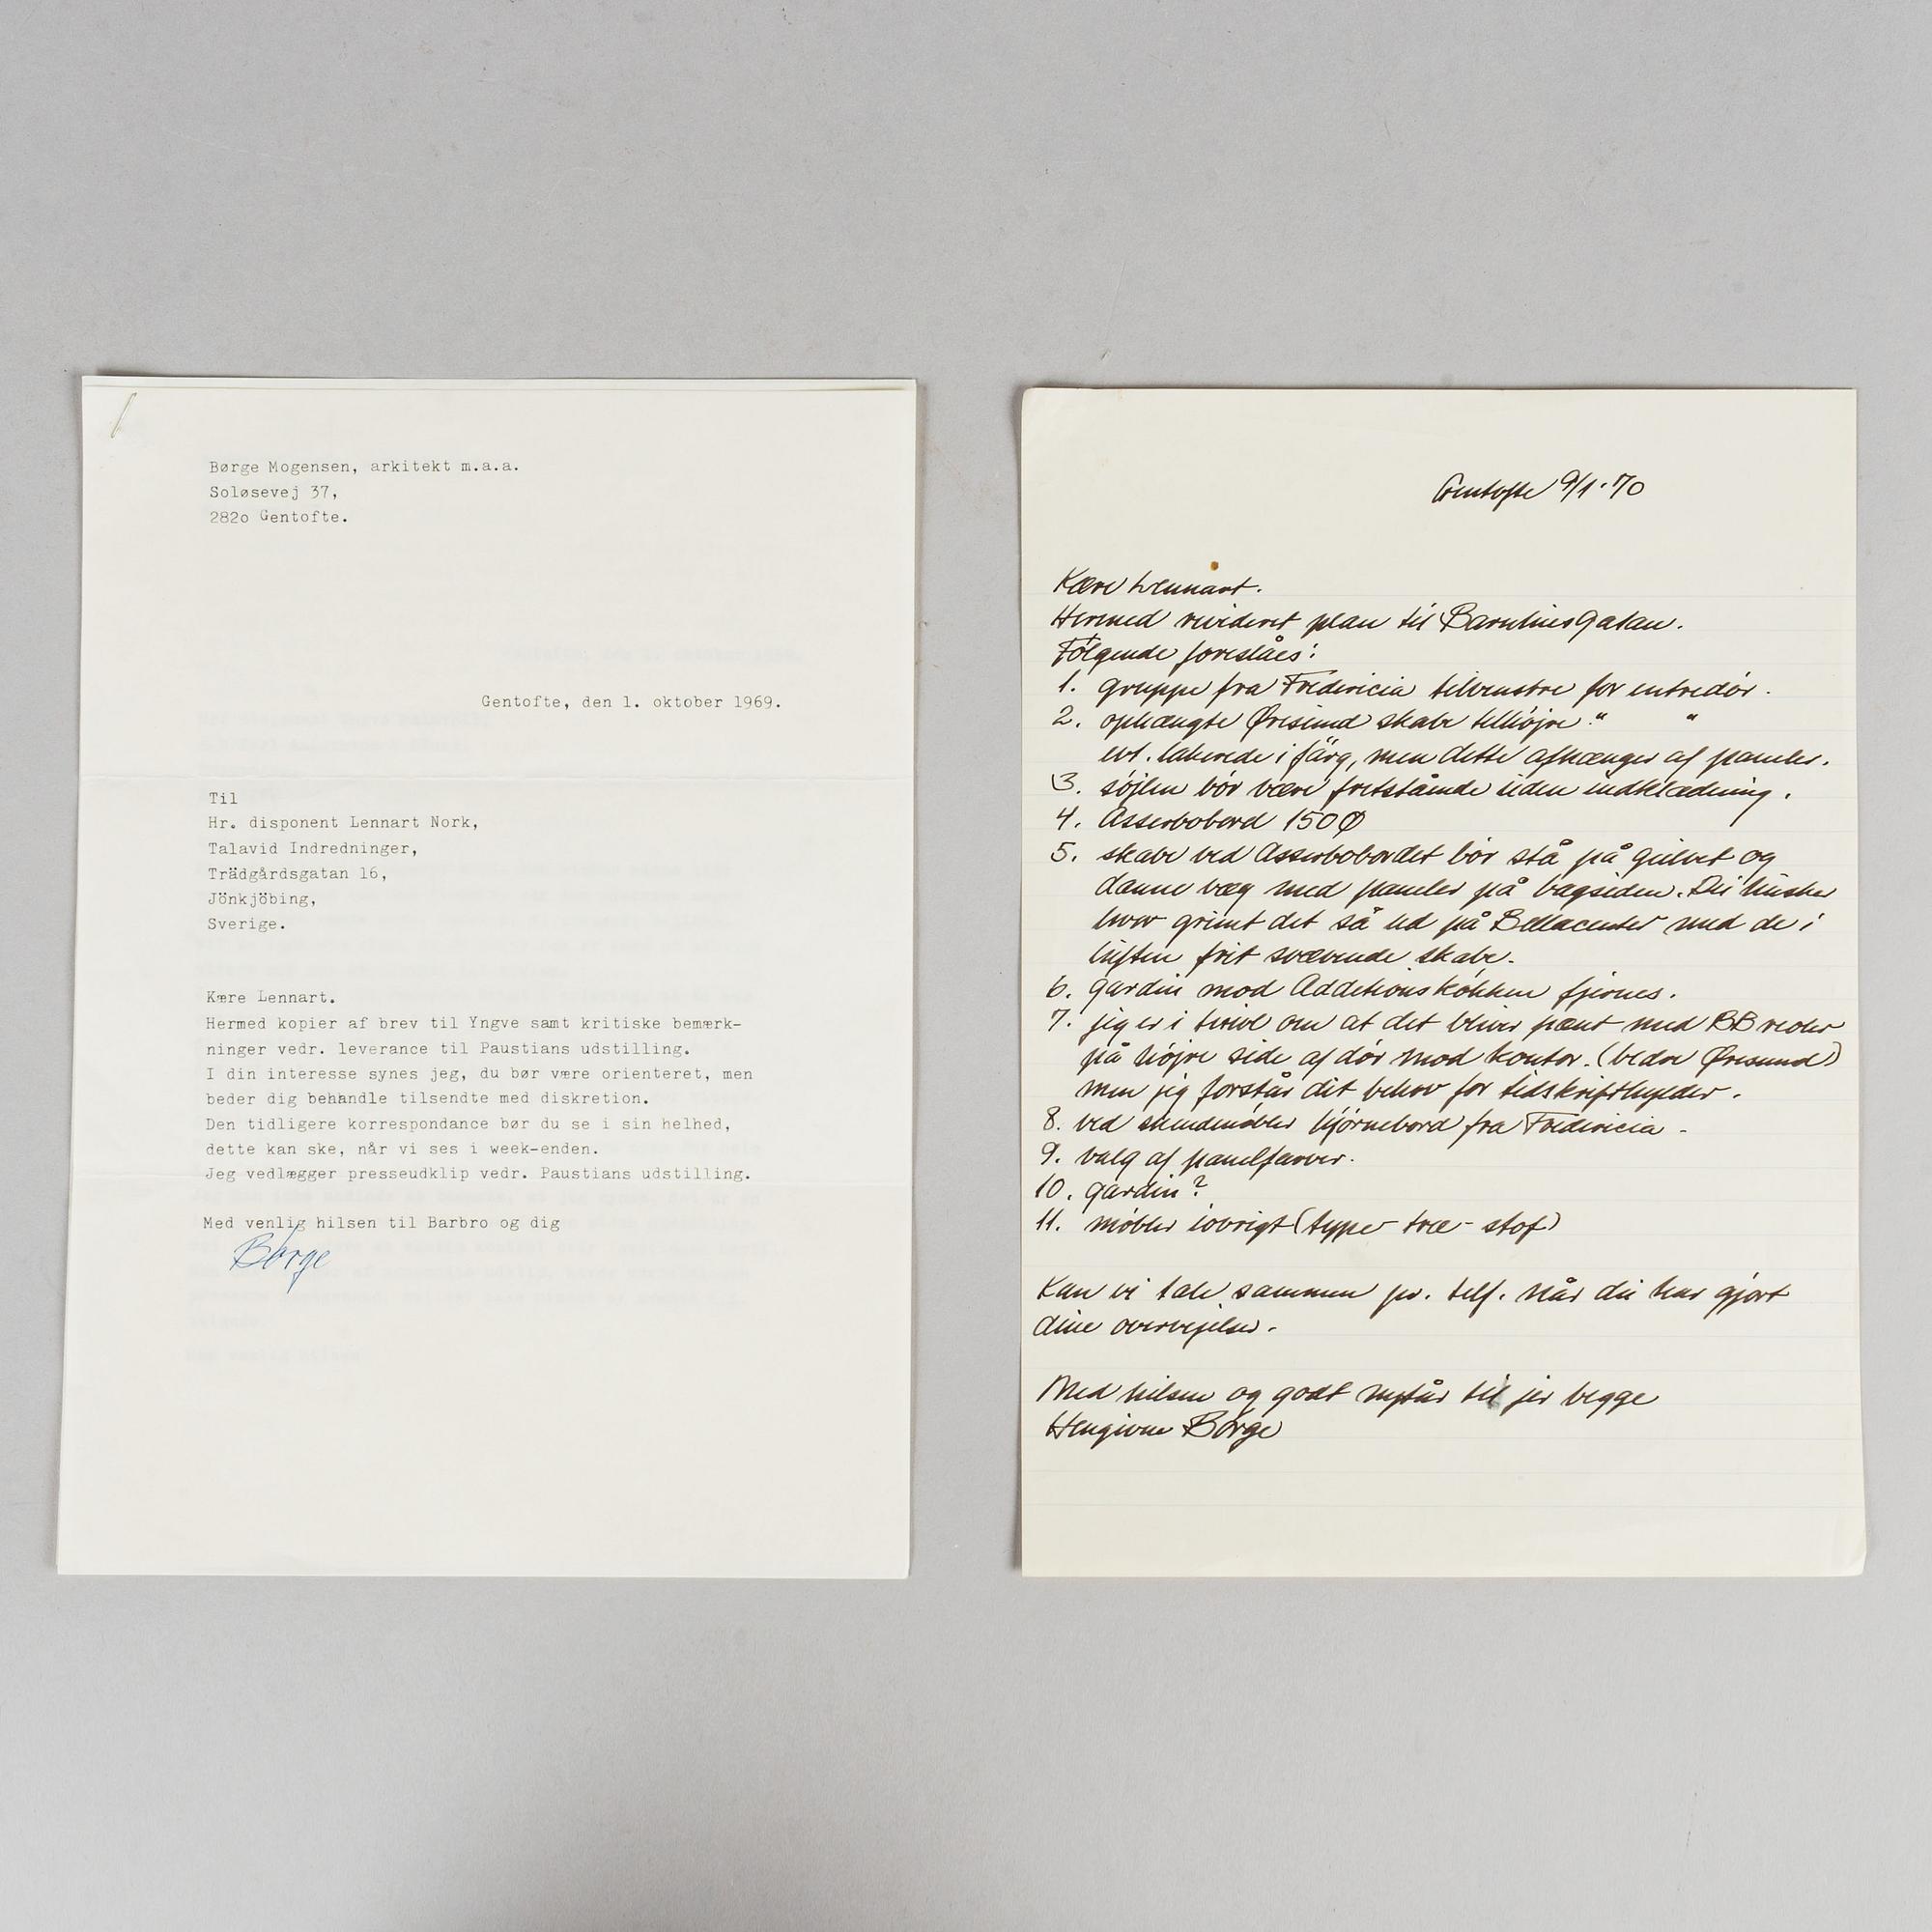 Børge Mogensen, arkitekt m.a.a.
Soløsevej 37,
282o Gentofte.
Gentofte, den 1. oktober 1969.
Til
Hr. disponent Lennart Nork,
Talavid Indredninger,
Trädgårdsgatan 16,
Jönkjöbing,
Sverige.
Kære Lennart.
Hermed kopier af brev til Yngve samt kritiske bemærk-
ninger vedr. leverance til Paustians udstilling.
I din interesse synes jeg, du bør være orienteret, men
beder dig behandle tilsendte med diskretion.
Den tidligere korrespondance bør du se i sin helhed,
dette kan ske, når vi ses i week-enden.
Jeg vedlægger presseudklip vedr. Paustians udstilling.
Med venlig hilsen til Barbro og dig
Børge
Gentofte 9/1·70
Kære Lennart.
Hermed revideret plan til
Følgende foreslåes:
1. gruppe fra Fredericia tilvenstre for entredør.
2. ophængte Øresund skabe tilhøjre " "
evt. lakerede i färg, men dette afhænger af paneler.
3. søjlen bør være fritstående uden indklædning.
4. Asserbobord 150Ø
5. skabe ved Asserbobordet bør stå på gulvet og
danne væg med paneler på bagsiden. Du husker
hvor grimt det så ud på Bellacenter med de i
luften frit svævende skabe.
6. gardin mod Additionskøkken fjernes.
7. jeg er i tvivl om at det bliver pænt med BB reoler
på højre side af dør mod kontor. (bedre Øresund)
men jeg forstår dit behov for tidskrifthylder.
8. ved skindmøbler hjørnebord fra Fredericia -
9. valg af panelfarver.
10. gardin?
11. møbler iøvrigt (type - træ - stof)
Kan vi tale sammen pr. telf. når du har gjort
dine overvejelser.
Med hilsen og godt nytår til jer begge
Hengivne Børge